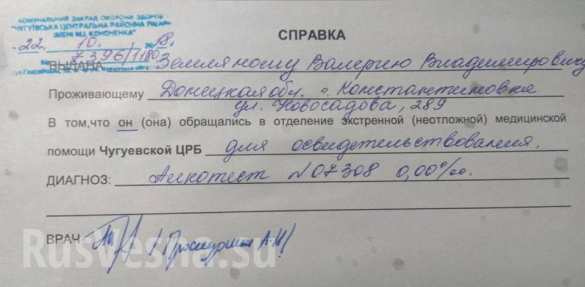 КОМУНАЛЬНИЙ ЗАКЛАД ОХОРОНИ ЗДОРОВ'Я
"ЧУГУЇВСЬКА ЦЕНТРАЛЬНА РАЙОННА ЛІКАРНЯ
ІМЕНІ М.І. КОНОНЕНКА"
СПРАВКА
22. 10. 18.
ВЫДАНА Земляному Валерию Владимировичу
Проживающему Донецкая обл. г. Константиновка
ул. Новосадова, 289
В том,что он (она) обращались в отделение экстренной (неотложной) медицинской
помощи Чугуевской ЦРБ для освидетельствования.
ДИАГНОЗ: Алкотест №07308 0,00‰.
ВРАЧ
RusVesna.su